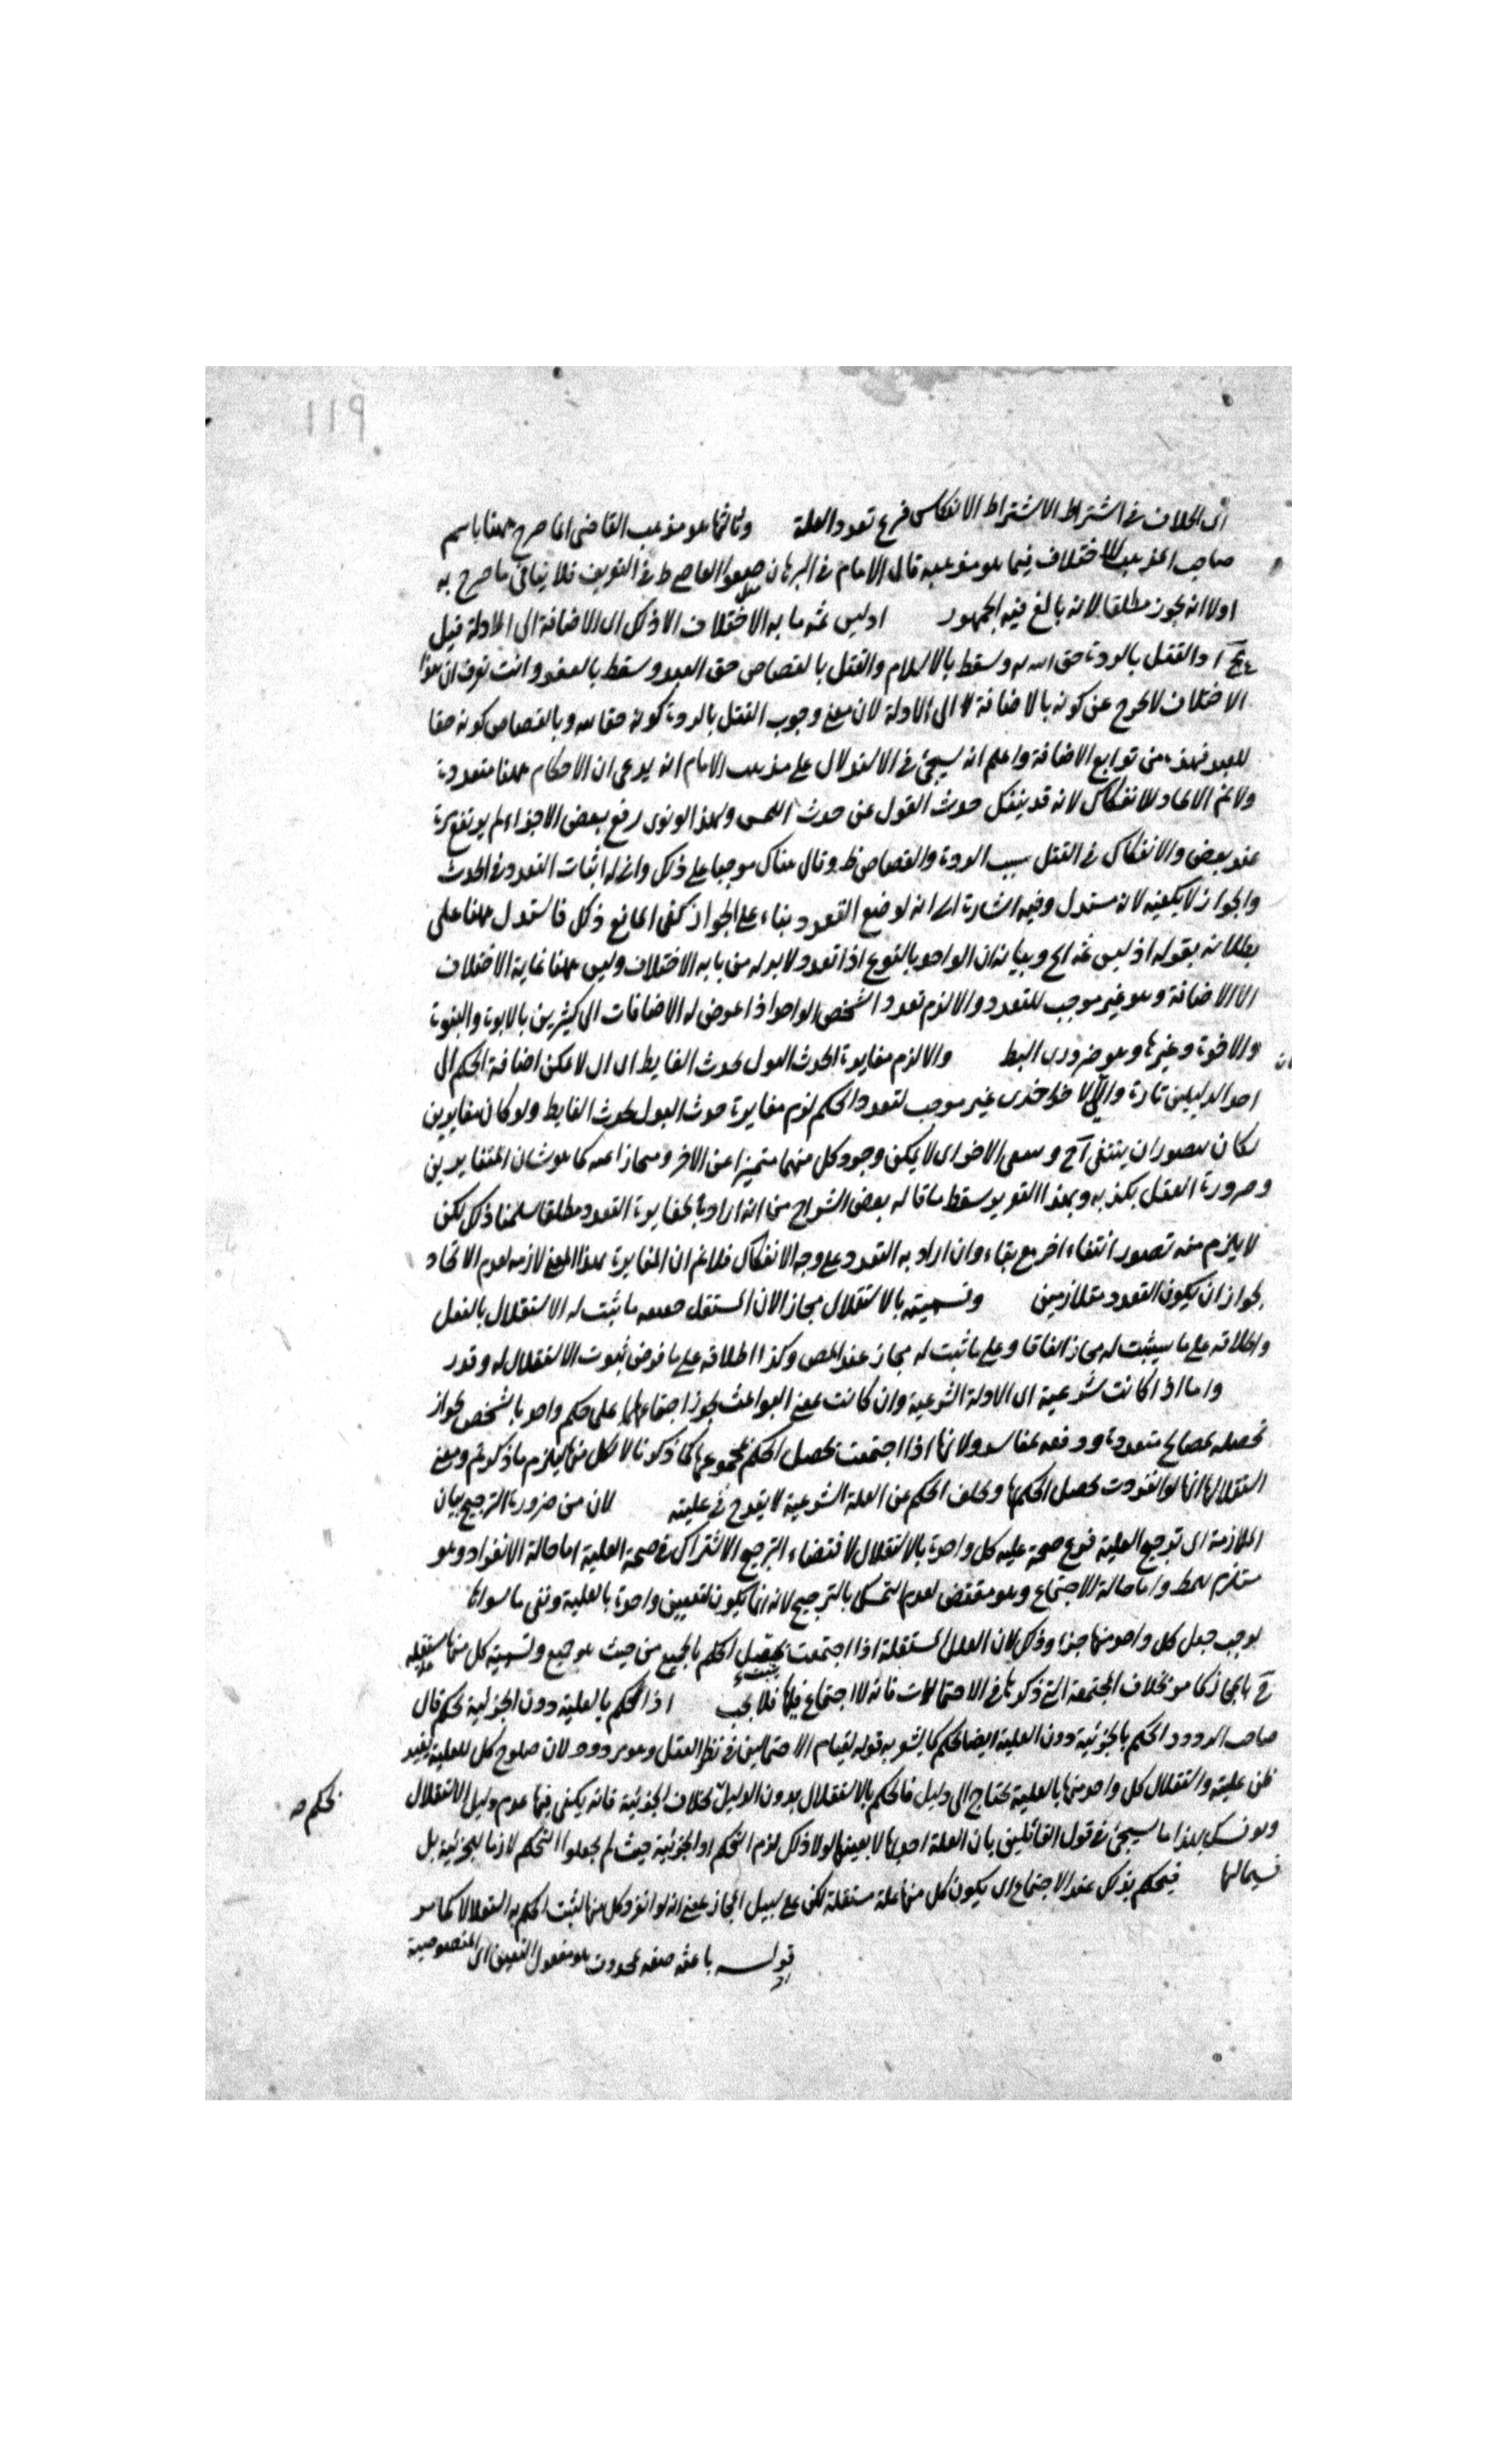 ١١٩
الى الخلاف في اشتراط الاشتراط الانعكاس فرع تعدد العلة وثالثها هو مذهب القاضى انما صرح ههنا باسم
صاحب المذهب لاختلاف فيما هو مذهبه قال الامام في البرهان في التعريف فلا ينافى ما صرح به
اولا انه يجوز مطلقا لانه بالغ فيه الجمهور اذ ليس ثمه ما به الاختلاف الا ذلك اى الاضافة الى الادلة قيل
القتل بالردة حق الله وسقط بالاسلام والقتل بالقصاص حق العبد وسقط بالعفو وانت تعرف ان هذا
الاختلاف لا يخرج عن كونه بالاضافة الى الادلة لان معنى وجوب القتل بالردة كونه حقا لله وبالقصاص كونه حقا
للعبد فهذه من توابع الاضافة واعلم انه سيجئ في الاستدلال على مذهب الامام انه يدعى ان الاحكام ههنا متعددة
ولا نم الاتحاد للانفكاك لانه قد ينفك حدث القول عن حدث اللمس ولهذا لو نوى رفع بعض الاجزاء لم يرتفع
عند بعض والانفكاك في القتل بسبب الردة والقصاص ظ وقال هناك موجبا على ذلك وانى له اثبات التعدد في الحدث
والجواز لا يكفيه لانه مستدل وفيه اشارة الى انه لو ضع التعدد بناء على الجواز كفى المانع ذلك فاستدل ههنا على
بطلانه بقوله اذ ليس ثمه الخ وبيانه ان الواحد بالنوع اذا تعدد لا بد له من ما به الاختلاف وليس ههنا غاية الاختلاف
الا الاضافة وهو غير موجب للتعدد والا لزم تعدد الشخص الواحد اذا عرض له الاضافات الى كثيرين بالابوة والبنوة
والاخوة وغيرها وهو ضرورى البط والا لزم مغايرة الحدث البول لحدث الغايط اى ال لا مكن اضافة الحكم الى
احد الدليلين تارة والى الاخر اخرى غير موجب لتعدد الحكم لزم مغايرة حدث البول لحدث الغايط ولو كان مغايرين
لكان يتصور ان ينتفى وسعى الاخر اى لا يمكن وجود كل منهما متميزا عن الاخر كما هو شان المتغايرين
وضرورة العقل يكذبه وبهذا التقرير سقط ما قاله بعض الشراح من انه اراد بالمغايرة التعدد مطلقا سلمنا ذلك لكن
لا يلزم منه تصور انتفاء اخر مع بقاء وان اراد به التعدد على وجه الانفكاك فلا نم ان المغايرة بهذا المعنى لازمه لعدم الاتحاد
لجواز ان يكون التعدد متلازمين وتسميته بالاستقلال مجاز الان المستقل حقيقه ما ثبت له الاستقلال بالفعل
واطلاقه على ما سيثبت له مجاز اتفاقا وعلى ما ثبت له مجاز عند المص وكذا اطلاقه على ما فرض ثبوت الاستقلال له وقدر
واما اذا كانت شرعية اى الادلة الشرعية وان كانت بمعنى البواعث يجوز اجتماعها على حكم واحد بالشخص لجواز
تحصله لمصالح متعددة ودفعه لمفاسد ولانها اذا اجتمعت يحصل الحكم بمجموعها كما ذكرنا لا بكل منها ليلزم ما ذكرتم ومعنى
استقلالها انها لو انفردت يحصل الحكم بها وتخلف الحكم عن العلة الشرعية لا يقدح في عليته لان من ضرورة الترجيح بيان
الملازمة اى ترجح العلية فرع صحة علية كل واحدة بالاستقلال لاقتضاء الترجيح الاشتراك في صحة العلية اما حالة الانفراد وهو
مستلزم للمط واما حالة الاجتماع وهو مقتض لعدم التمسك بالترجيح لانه انما يكون لتعيين واحدة بالعلية ونفى ما سواها
يوجب جعل كل واحد منها جزءا وذلك لان العلل المستقلة اذا اجتمعت يحصل الحكم بالجميع من حيث هو جميع وتسمية كل منها مستقله
ح بالمجاز كما مر بخلاف المجتمعة التى ذكرها في الاحتمالات فانه لا اجتماع فيها فلا يجب اذ الحكم بالعلية دون الجزئية تحكم قال
صاحب الردود الحكم بالجزئية دون العلية ايضا تحكم كما يشعر به قوله لقيام الاحتمالين في نظر العقل وهو مردود لان صلوح كل للعلية يفيد
ظن عليته واستقلال كل واحد منها بالعلية يحتاج الى دليل فالحكم بالاستقلال بدون الدليل بخلاف الجزئية فانه يكفى فيها عدم دليل الاستقلال
تحكم صح
ويونسك لهذا ما سيجئ في قول القائلين بان العلة احدها لا بعينها لولا ذلك لزم التحكم او الجزئية حيث لم يجعلوا التحكم لازما للجزئية بل
قسيما لها فيحكم بذلك عند الاجتماع اى يكون كل منها علة مستقلة لكن على سبيل المجاز بمعنى انه لو انفرد كل منها لثبت الحكم به استقلالا كما مر
قوله باعثه صفه لمحذوف هو مفعول التعيين اى المنصوصية